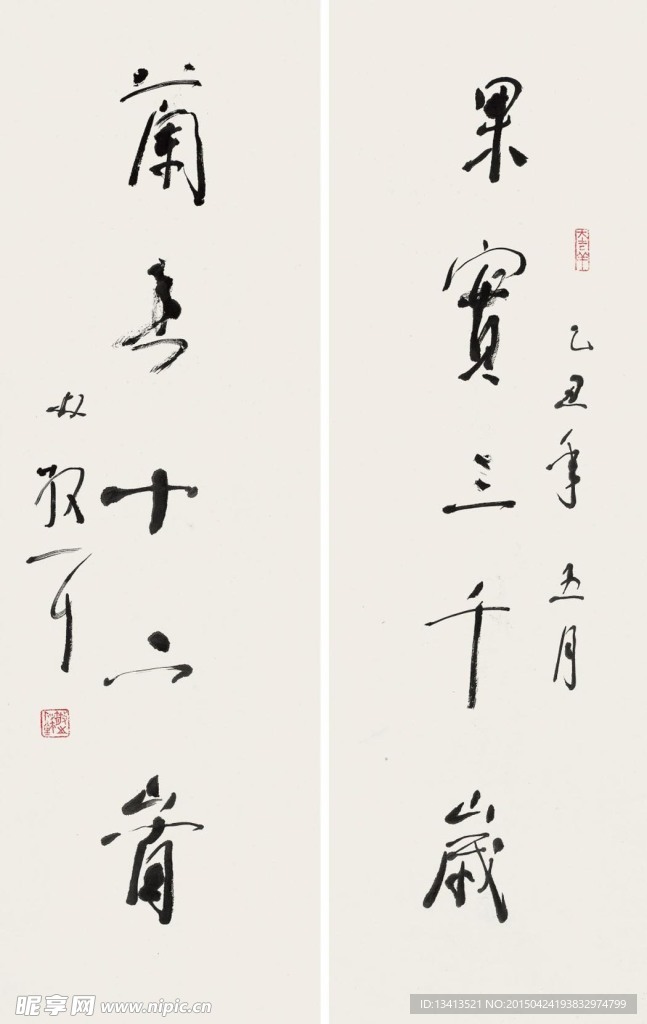 果實三千歲
乙丑年五月
蘭香十
林散耳
大吉羊
昵享网 www.nipic.cn
ID:13413521 NO:20150424193832974799